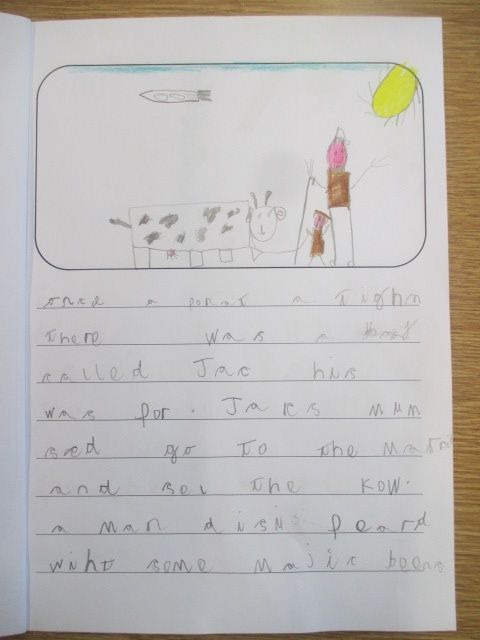 once a ponat a tighm
there was a
called Jac his
was por. Jacs mum
sed go to the
and sel the kow.
a man disi peard
wiht some majic beens